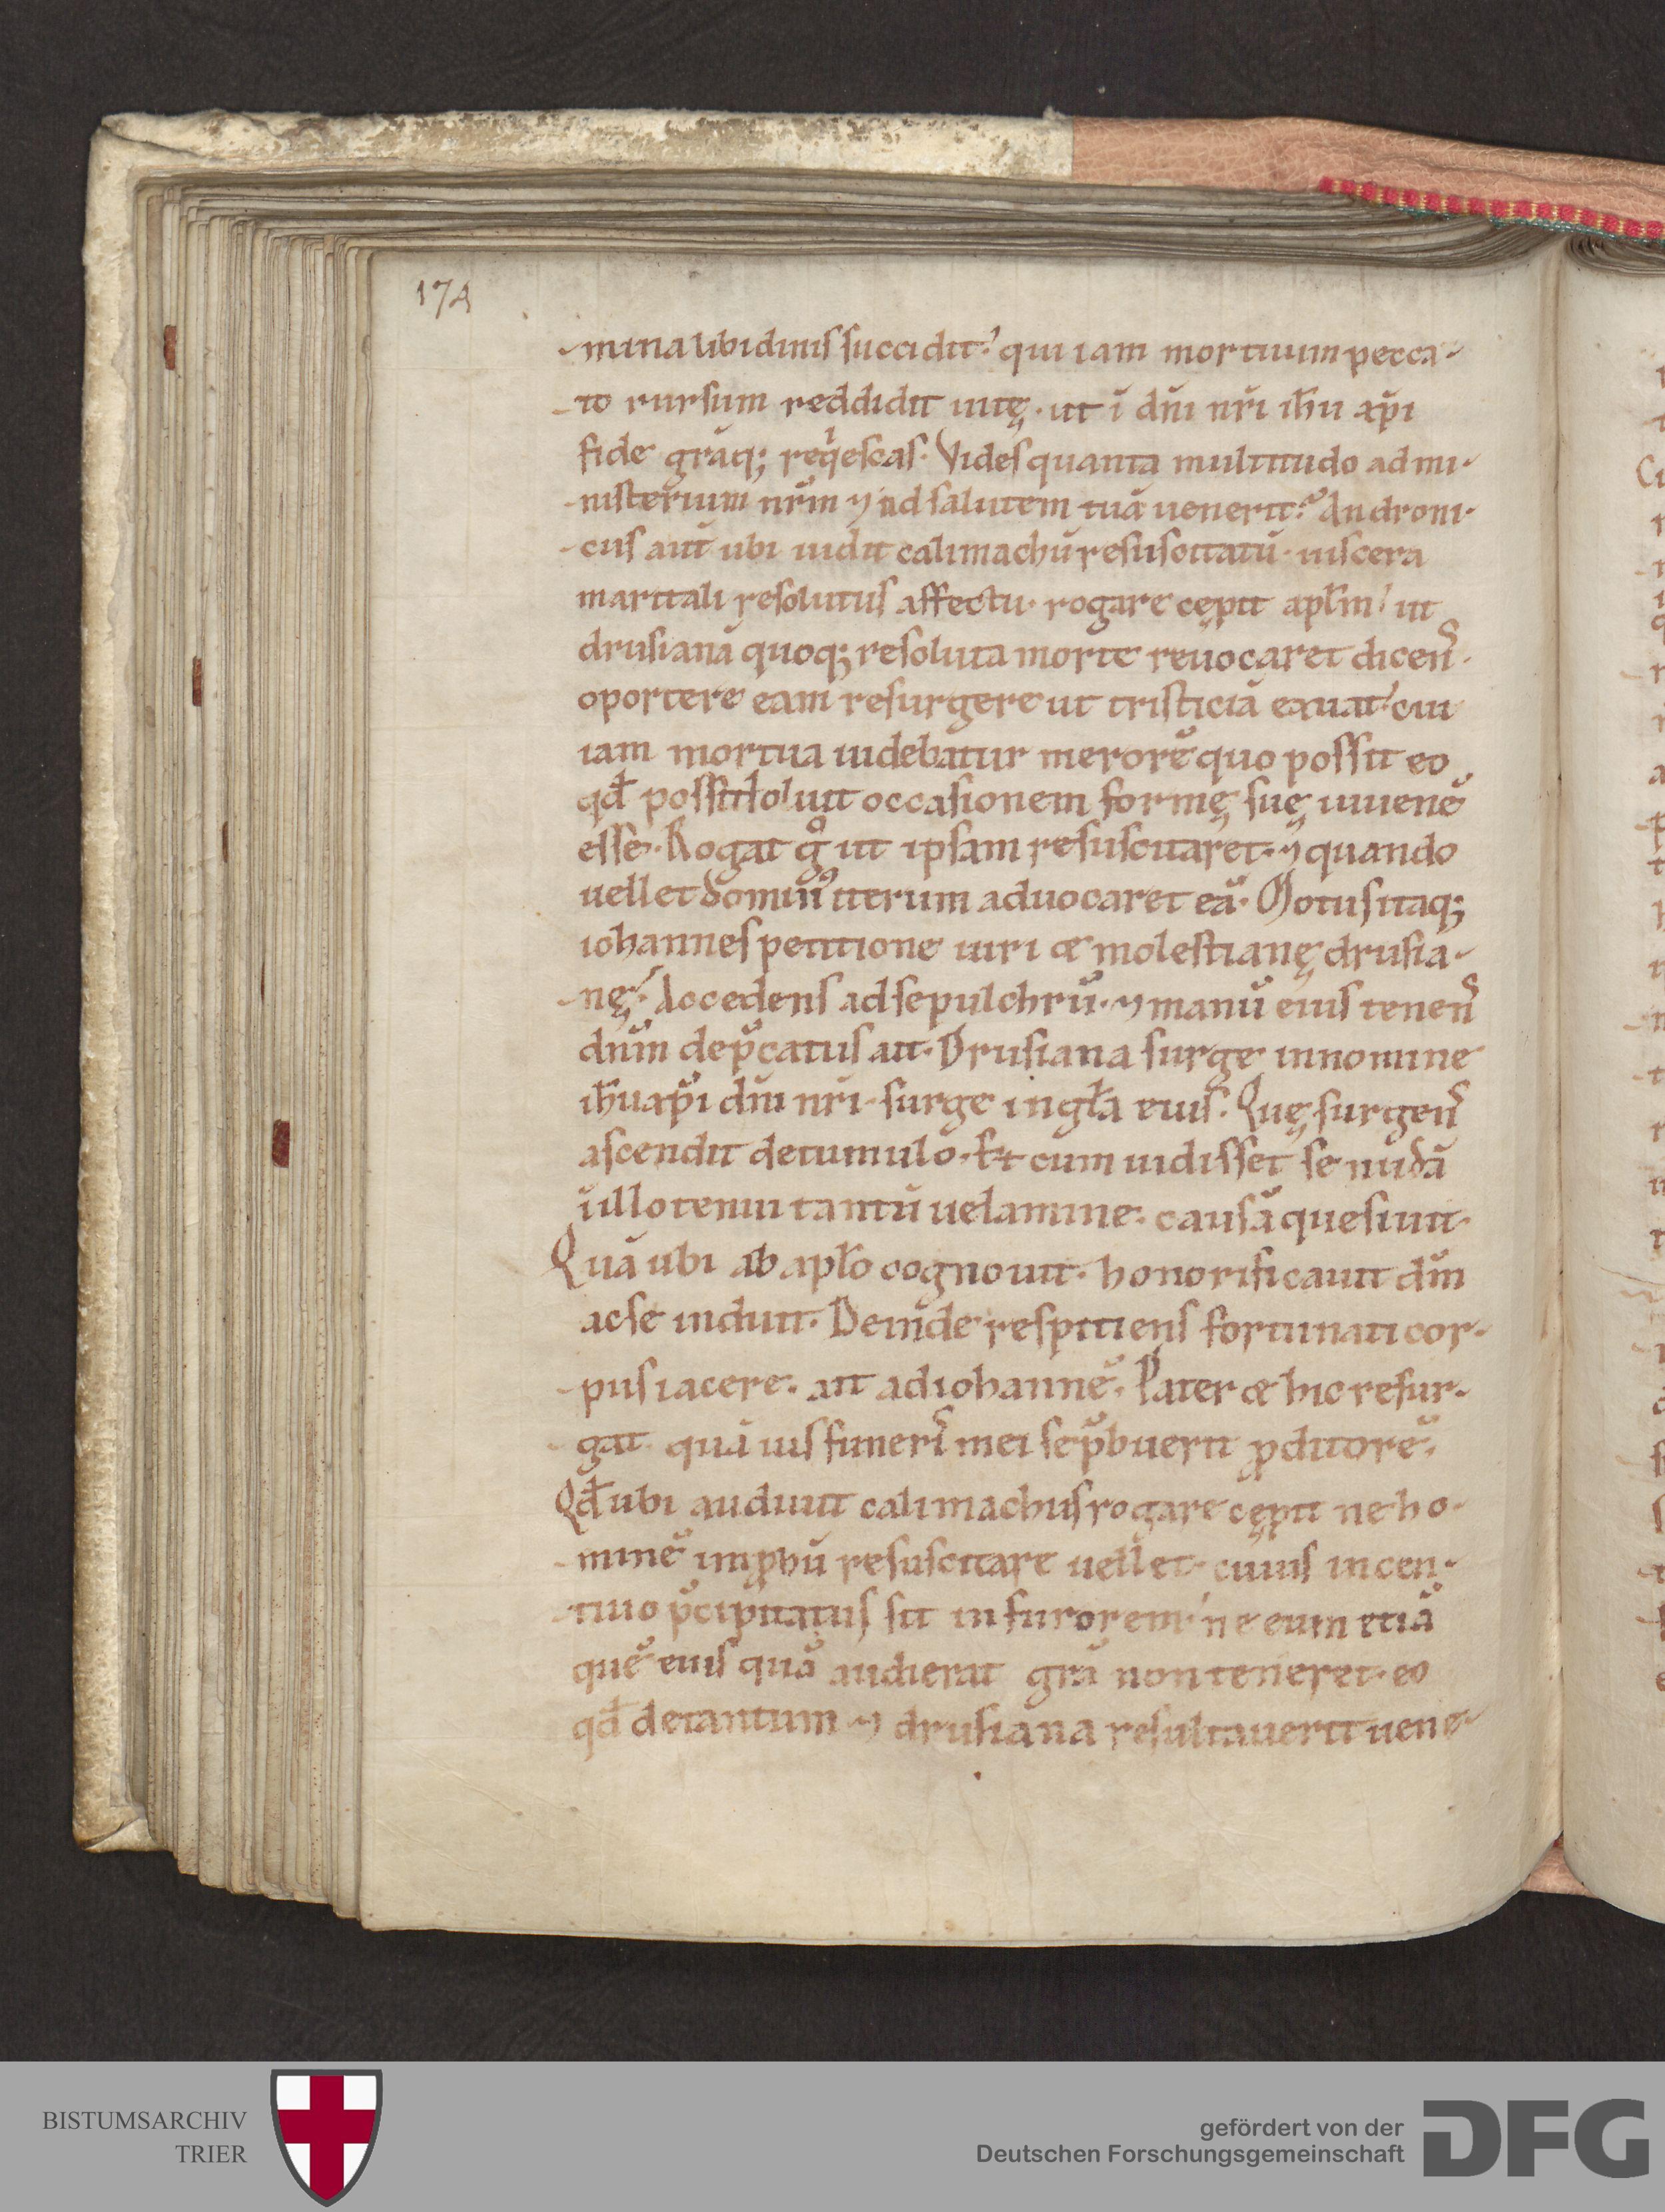 174
-mina libidinis succidit? qui iam mortuum pecca-
-to rursum reddidit uitę. ut ī dn̄i nr̄i ih̄u xp̄i
fide grāq; reqͥescas. Vides quanta multitudo ad mi-
-nisterium nr̄m ⁊ ad salutem tuā uenerit? Androni-
-cus aut̄ ubi uidit calimachū resuscitatū. uiscera
maritali resolutus affectu. rogare cępit apl̄m ut
drusianā quoq; resoluta morte reuocaret dicen̄s.
oportere eam resurgere ut tristiciā exuat cui
iam mortua uidebatur merorē quo possit eo
qđ possit łoluit occasionem formę suę iuuenē
esse. Rogat gͦ ut ipsam resuscitaret. ⁊ quando
uellet dominꝰ iterum aduocaret eā. Motus itaq;
iohannes petitione uiri æ molestianę drusia-
-nę. Accedens ad sepulchrū. ⁊ manū eius tenen̄s
dn̄m dep̄catus ait. Drusiana surge in nomine
ih̄u xp̄i dn̄i nr̄i. surge in gła eius. Quę surgen̄s
ascendit de tumulo. Et cum uidisset se nudā
ī illo tenui tantū uelamine. causā quesiuit.
Quā ubi ab apl̄o cognouit. honorificauit dn̄m
ac se induit. Deinde respitiens fortunati cor-
-pus iacere. ait ad iohannē. Pater æ hic resur-
-gat quā uis funeris mei sep̄buerit ꝓditorē.
Qđ ubi audiuit calimachus rogare cępit ne ho-
-minē imꝓbū resuscitare uellet. cuius incen-
-tiuo p̄cipitatus sit in furorem. ne eum etiā
quē eius quā audierat grā non teneret. eo
qđ detantum ⁊ drusiana resultauerit uene-
BISTUMSARCHIV
TRIER
gefördert von der
Deutschen Forschungsgemeinschaft
DFG